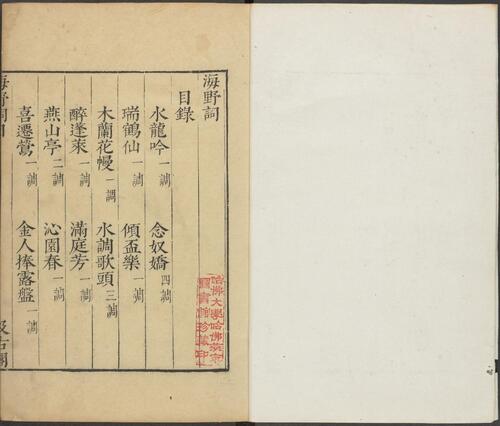 海野詞
目錄
水龍吟一調 念奴嬌四調
瑞鶴仙一調 傾盃樂一調
木蘭花慢一調 水調歌頭三調
醉蓬萊一調 滿庭芳一調
燕山亭二調 沁園春一調
喜遷鶯一調 金人捧露盤一調
海野詞目
汲古閣
哈佛大學哈佛燕京
圖書館珍藏印